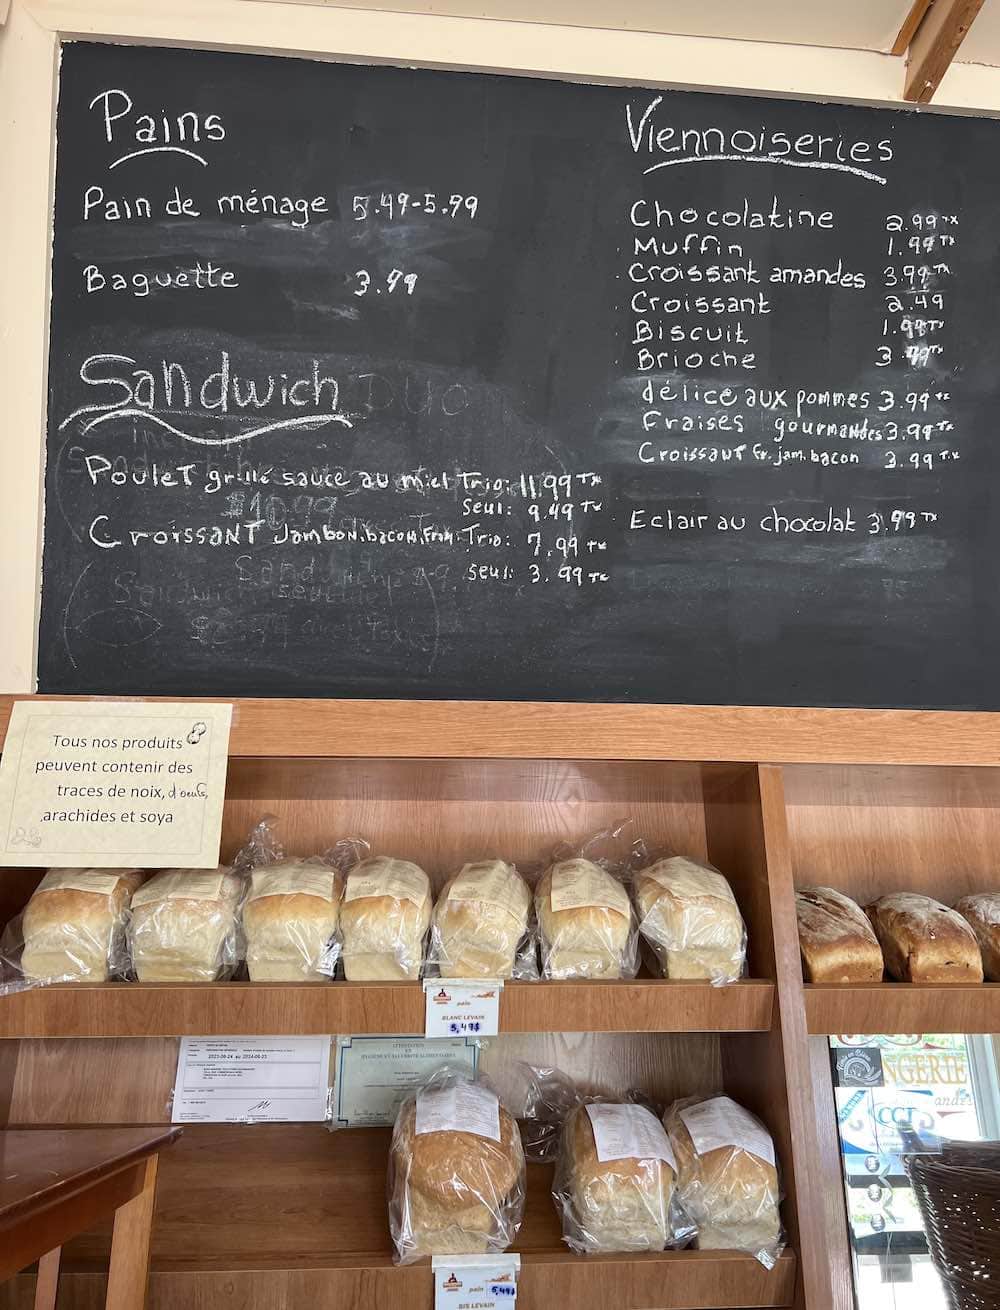 Pains
Pain de ménage 5.49-5.99
Baguette 3.99
Sandwich
DUO
Poulet grillé sauce au miel Trio: 11.99 TX
seul: 9.49 TX
$10.99
Croissant Jambon, bacon, From. Trio: 7.99 TX
seul: 3.99 TX
Viennoiseries
Chocolatine 2.99 TX
Muffin 1.99 TX
Croissant amandes 3.99 TX
Croissant 2.49
Biscuit 1.99 TX
Brioche 3.99 TX
délice aux pommes 3.99 TX
Fraises gourmandes 3.99 TX
Croissant fr. jam. bacon 3.99 TX
Eclair au chocolat 3.99 TX
Tous nos produits
peuvent contenir des
traces de noix, d'oeufs,
arachides et soya
pain
BLANC LEVAIN
5,49$
2023-06-24 au 2024-06-23
ATTESTATION
EN
HYGIÈNE ET SALUBRITÉ ALIMENTAIRES
pain 5,49$
BIS LEVAIN
NGERIE
CCI